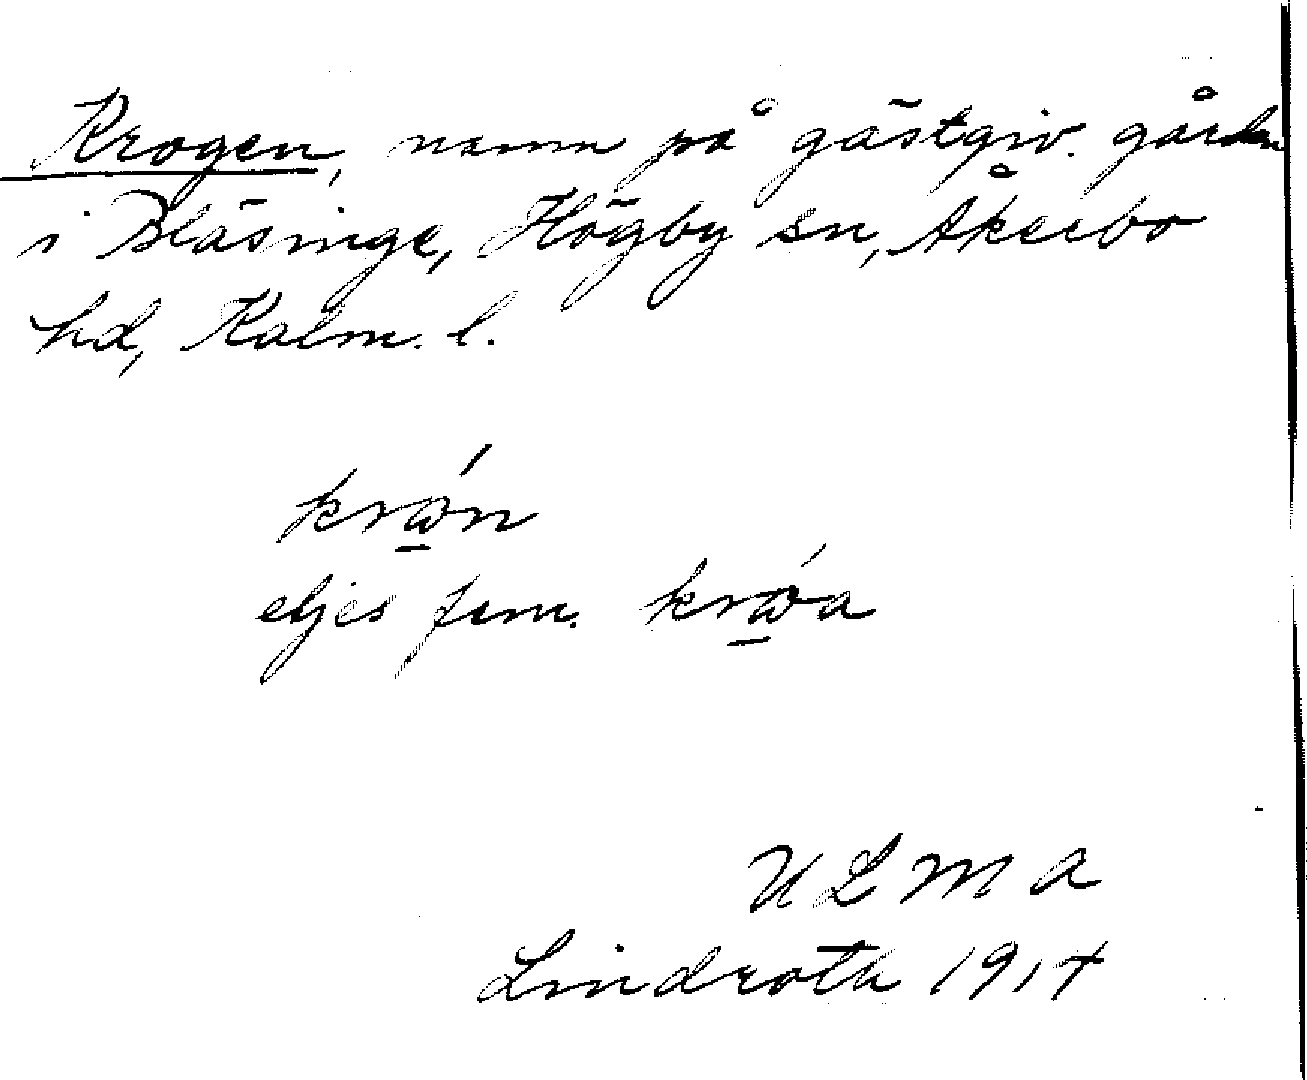 Krogen, namn på gästgiv. gården
i Bläsinge, Högby sn, Åkerbo
hd, Kalm. l.
krώ̲n
eljes fem. krώ̲a
ULMA
Lindroth 1914